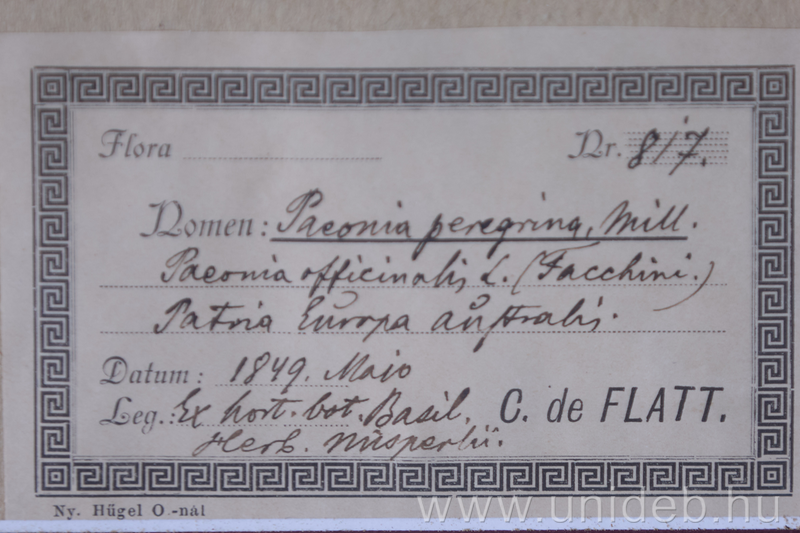 Flora
Nr. 817.
Nomen: Paeonia peregrina, Mill.
Paeonia officinalis L. (Facchini.)
Patria Europa australis.
Datum: 1849. Majo
Leg.: Ex hort. bot. Basil. C. de FLATT.
Herb.
Ny. Hügel O.-nál
www.unideb.hu